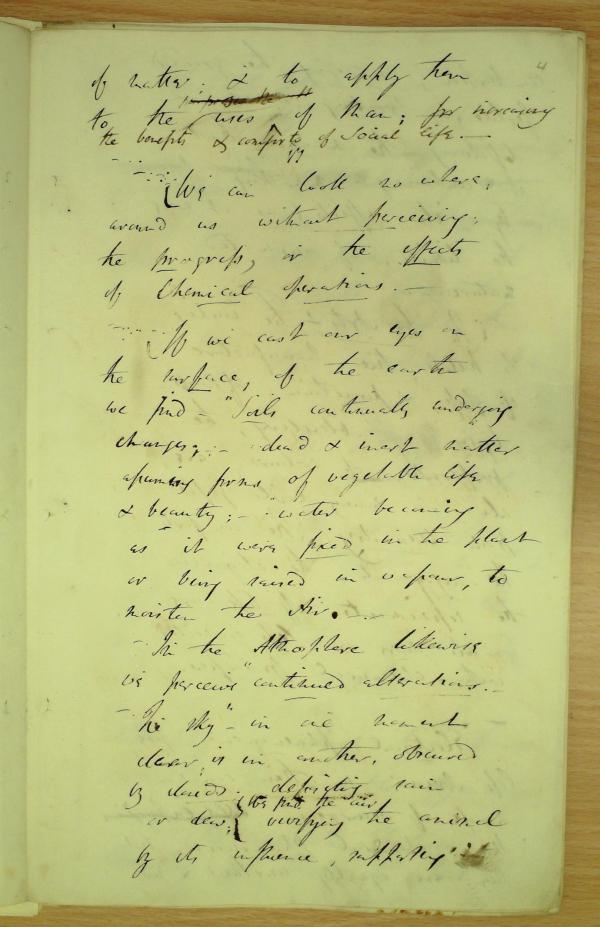 4
of matter; & to apply them
to the uses of Man; for increasing
the benefits & comforts of Social life.—
We can look no where,
around us without perceiving;
the progress, or the effects
of Chemical operations.—
If we cast our eyes on
the surface, of the earth
we find – "Soils continually undergoing
changes; – dead & inert matter
assuming forms of vegetable life
& beauty; – water becoming
as it were fixed, in the plant
or being raised in vapour, to
moisten the Air. —
– In the Atmosphere likewise
we perceive "continued alterations. –
– The sky" – in one moment
clear, is in another, obscured
by clouds; depositing rain
we find the air
or dew; { vivifying the animal
by its influence, supporting it